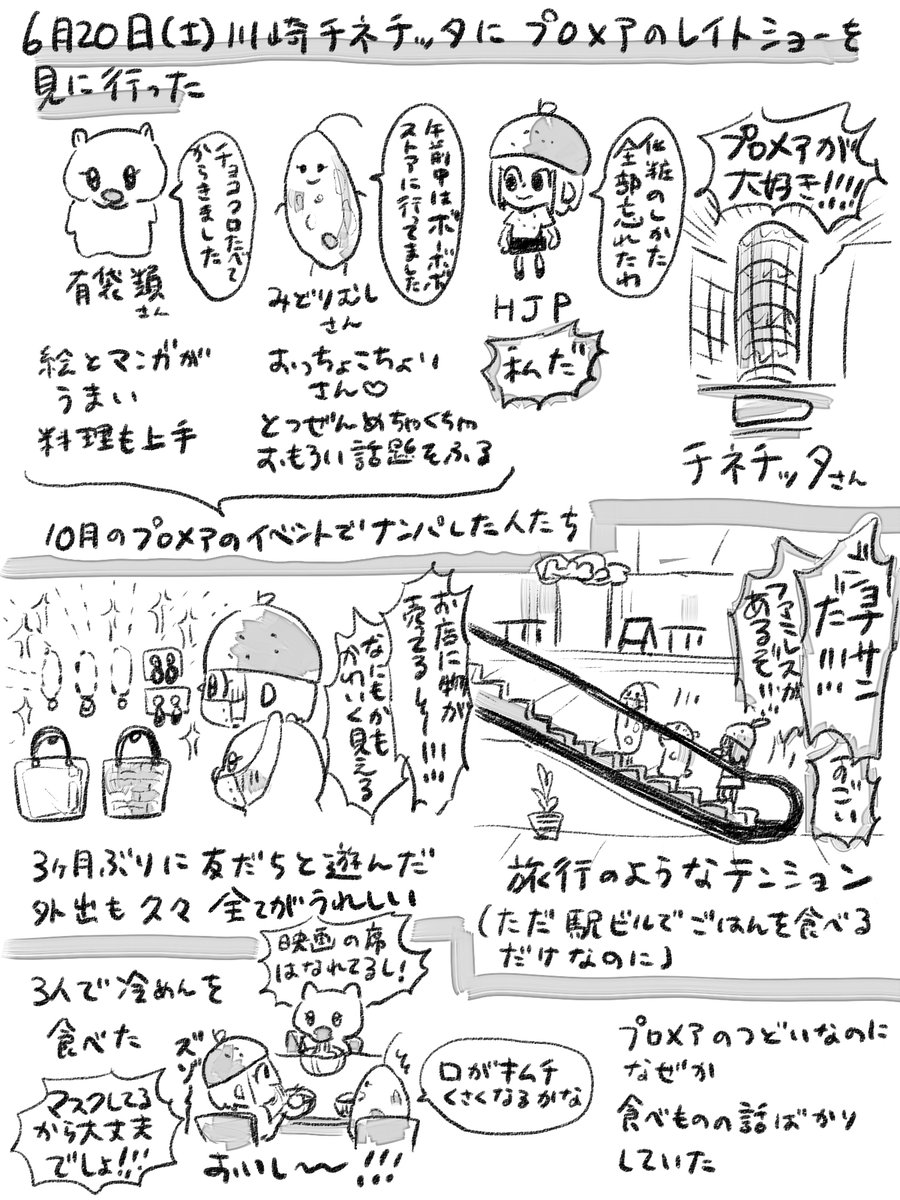 6月20日(土)川崎チネチッタに プロメアのレイトショーを
見に行った
チョコクロたべて
からきました
有袋類
さん
絵とマンガが
うまい
料理も上手
午前中はボーボボ
ストアに行ってました
みどりむし
さん
おっちょこちょい
さん♡
とつぜんめちゃくちゃ
おもろい話題をふる
化粧のしかた
全部忘れたわ
HJP
私だ
プロメアが
大好き!!!!
チネチッタさん
10月のプロメアのイベントでナンパした人たち
お店に物が
売ってるし〜!!!!!
なにもかも
かわいく見える
3ヶ月ぶりに友だちと遊んだ
外出も久々 全てがうれしい
ジョナサン
だ!!!!
ファミレスが
あるぞ!!!
すごい
旅行のようなテンション
(ただ駅ビルでごはんを食べる
だけなのに)
3人で冷めんを
食べた
映画の席
はなれてるし!
ズゾー
口がキムチ
くさくなるかな
マスクしてる
から大丈夫
でしょ!!!
おいし〜〜!!!
プロメアのつどいなのに
なぜか
食べものの話ばかり
していた